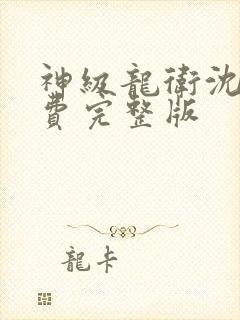 神級龍衛沈
費完整版
龍卡